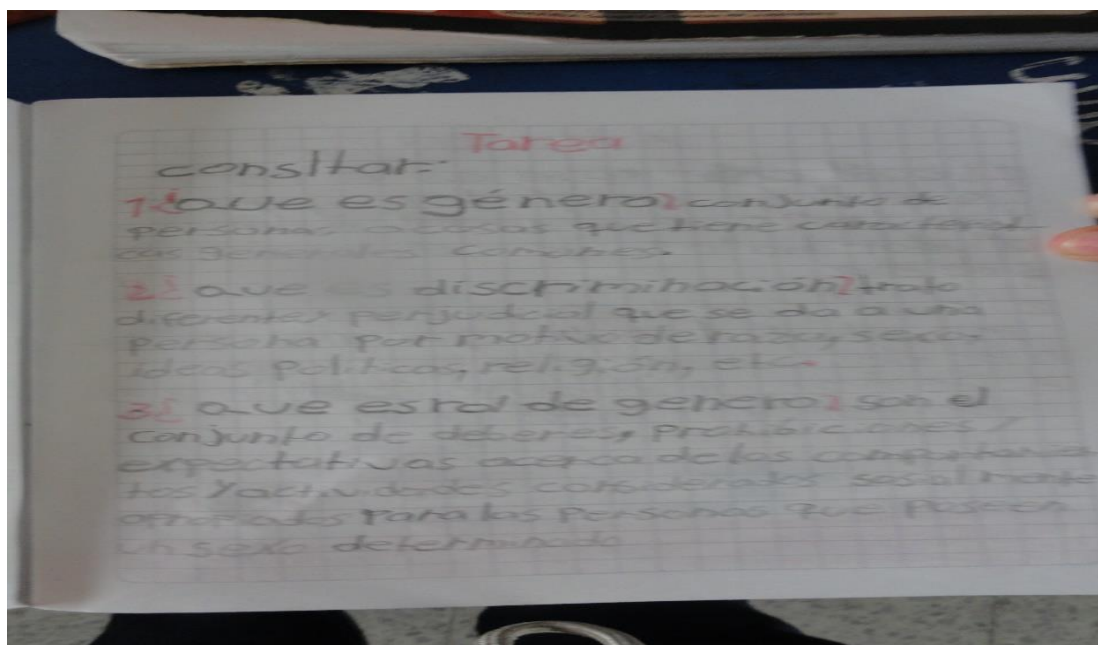 Tarea
consltar:
1.¿que es género? conjunto de
personas cosas que tiene caracteristi
cas generales comunes.
2¿ que es discriminación? trato
diferente y perjudicial que se da a una
persona por motivo de raza, sexo,
ideas politicas, religión, etc.
3¿ que es rol de genero? son el
conjunto de deberes, prohibiciones y
expectativas acerca de los comportamien
tos y actividades considerados sosialmente
apropiados para las personas que poseen
un sexo determinado